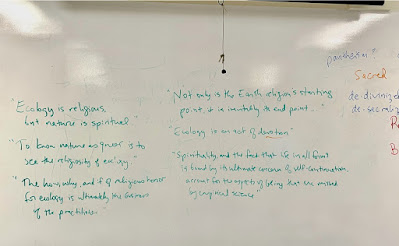 "Ecology is religious,
but nature is spiritual"
"To know nature as queer is to
see the religiosity of ecology"
"The how, why, and if of religious honor
for ecology is ultimately the business
of the practitioner."
"Not only is the Earth religion's starting
point, it is inevitably its end point..."
"Ecology is an act of devotion"
"Spirituality, and the fact that life in all forms
is bound by its ultimate concern of self-continuation,
account for the aspects of being that are missed
by empirical science"
pantheism
Sacred
de-diviniz
de-sacraliz
R
B